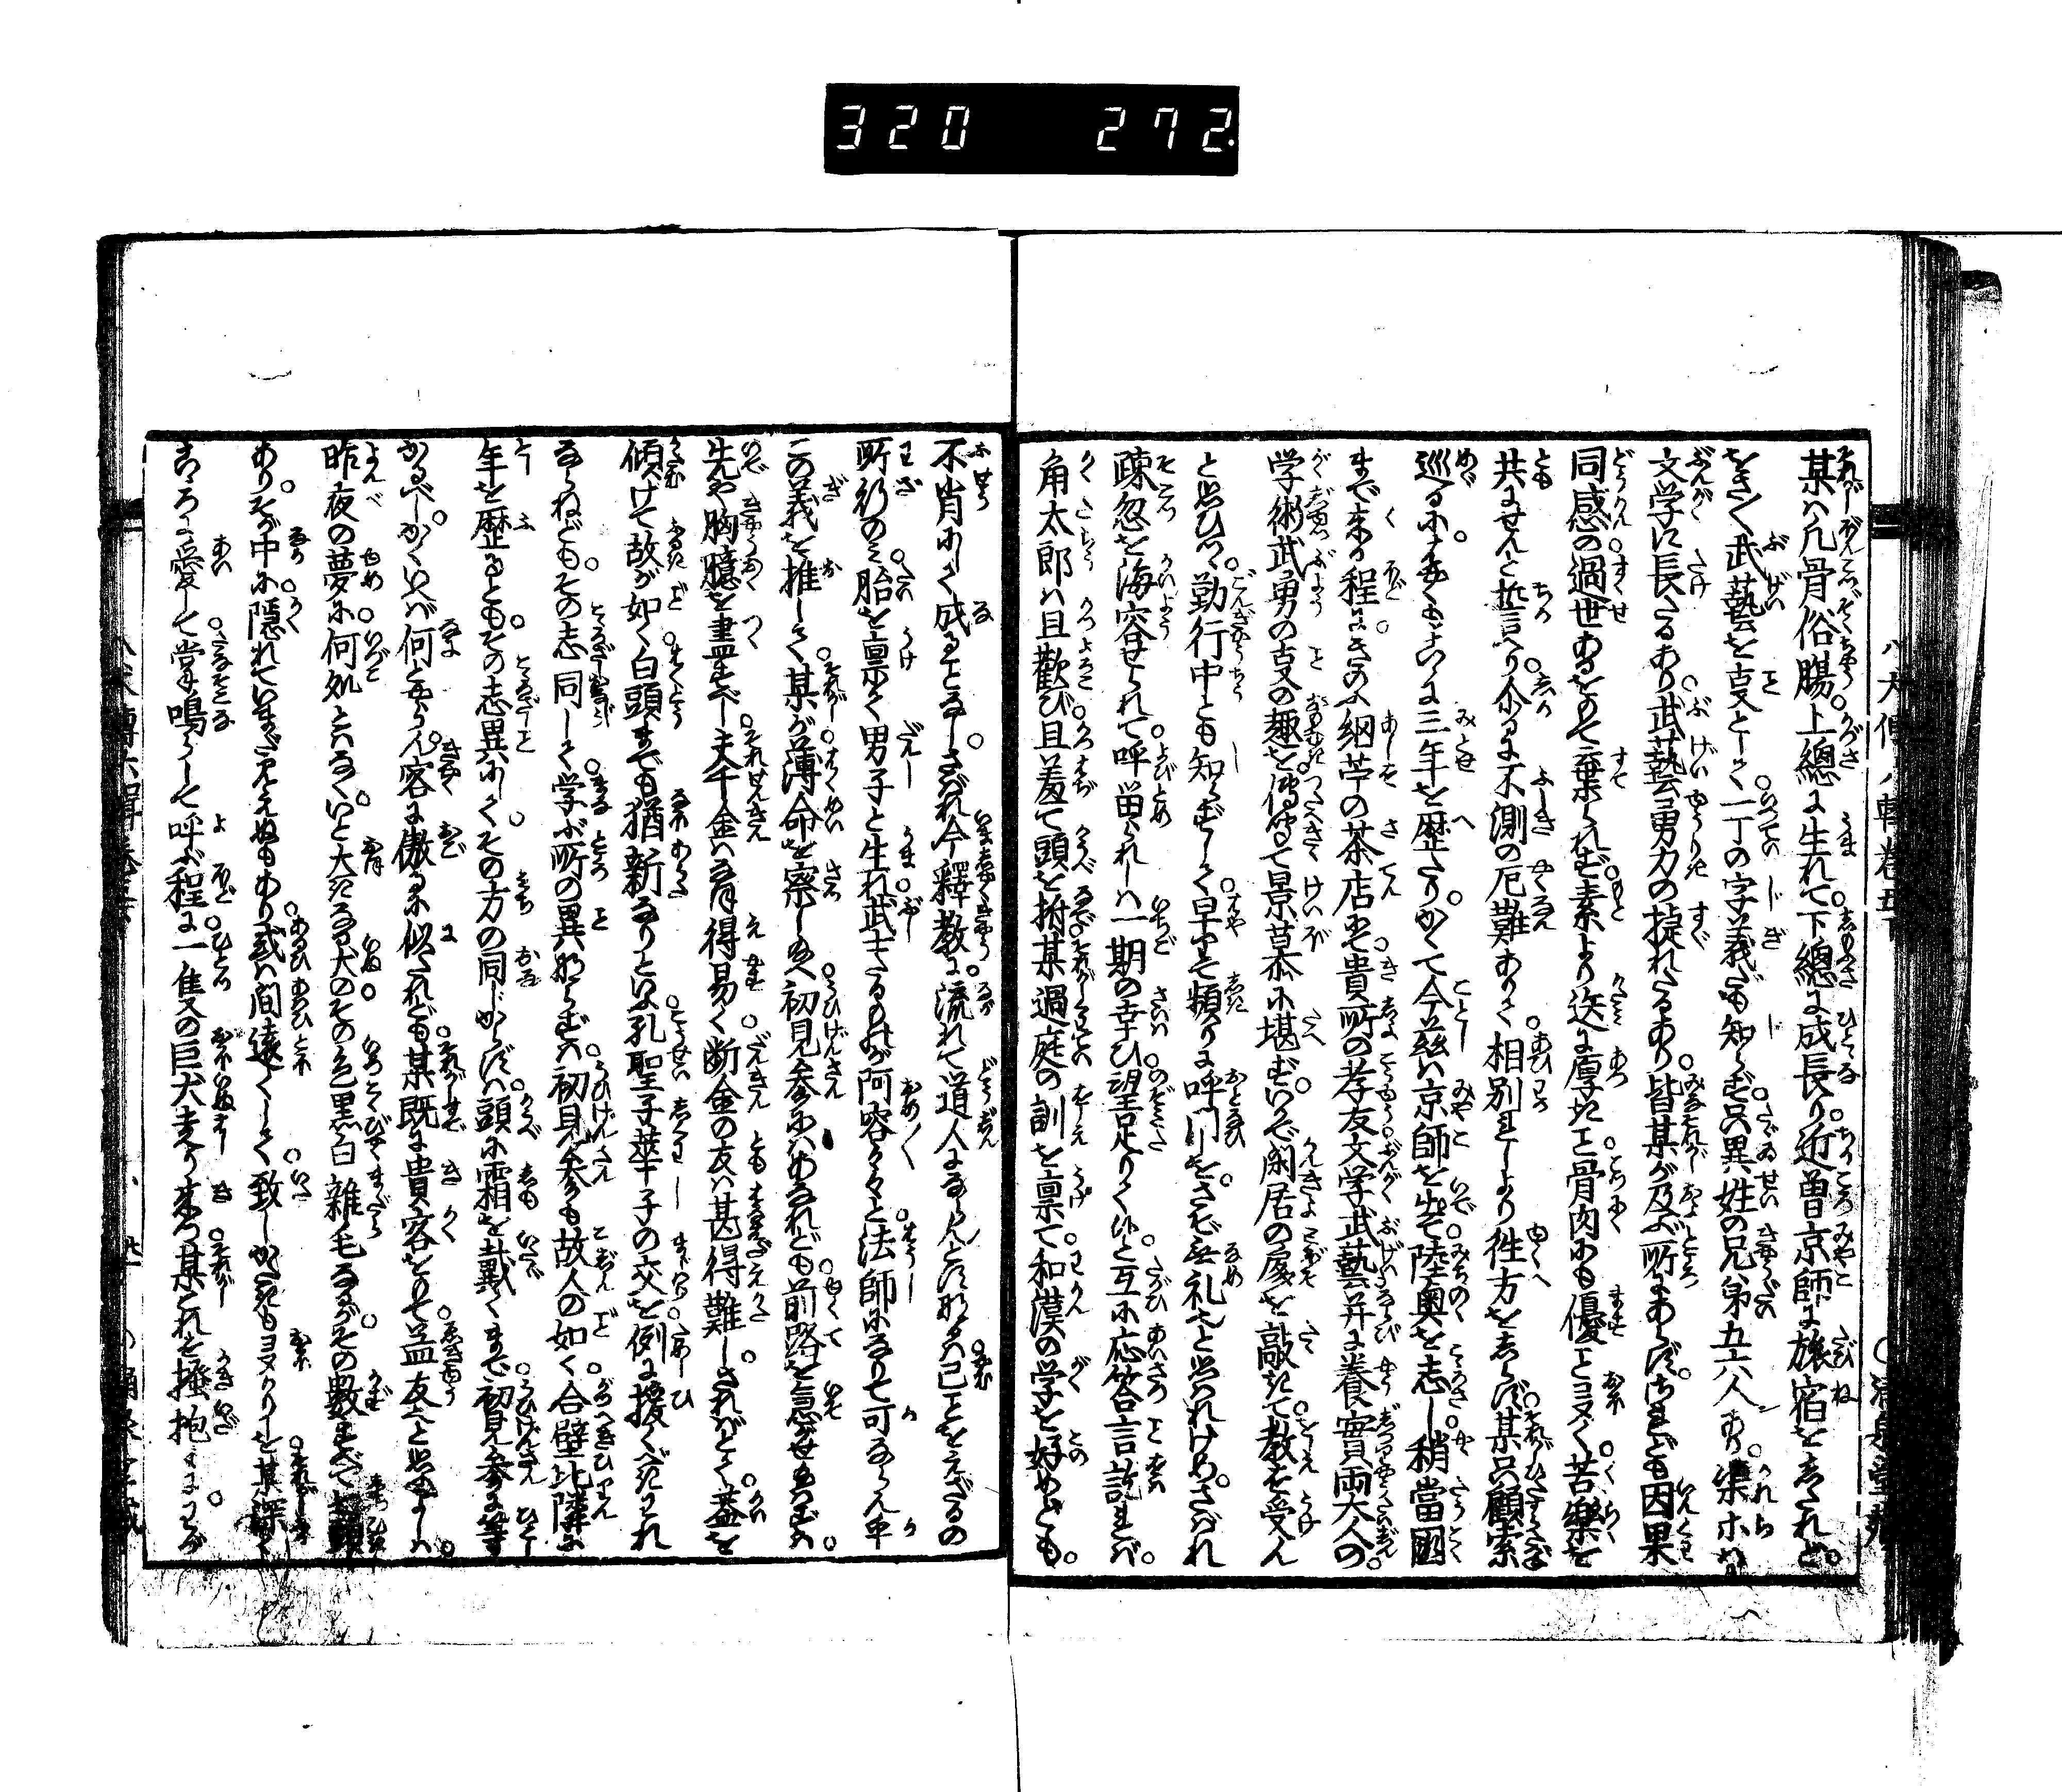 320 272
某ハ凡骨俗腸。上總に生れて。下總に成長り。近曽京師に旅宿をしたれど。
をさ〳〵武藝を事として。一丁の字義だも知らず。只異姓の兄弟五六人あり。渠ホハ
文学に長たるあり。武藝勇力の捷れたるあり。皆某が及ぶ所にあらず。されども因果
同感の。過世あるをもて棄られず。素より迭に厚きこと。骨肉にも優こと多く。苦樂を
共にせんと誓へり。尓るに不測の厄難ありて。相別れしより往方をしらず。某只顧索
巡るに。手もなくこゝに三年を歴たり。かくて今茲ハ京師を出て。陸奥を志し。稍當國
まで来る程に。きのふ網苧の茶店にて。貴所の孝友文学武藝并に養實両大人の。
学術武勇の事の趣を。傳聞て景慕に堪ず。いかで閑居の扉を敲きて。教を受ん
と思ひつゝ。勤行中とも知らずして。早にて頻りに呼門しを。さぞ無礼さと思れけめ。さばれ
疎忽を海容せられて。呼畄られしハ一期の幸ひ。望足りて候と。互に応答言訖れバ。
角太郎ハ且歡び。且羞て頭を拊。某過庭の訓を稟て。和漢の学を好めども。
不肖にして成ることなし。さばれ今釋教に。流れて道人にならんとにハあらず。已ことをえざるの
所行のミ。胎を禀て男子と生れ。武士たるものが阿容々々と。法師になりて可ならんや。
この義を推して。某が。薄命を察し給へ。初見參にハあなれども。前路を急がせ給ハずバ。
先や胸臆を盡すべし。夫千金ハなほ得易く。断金の友ハ甚得難し。されバとて。蓋を
傾けて故が如く。白頭までも猶新なりといふ。孔聖子華子の交を。例に援くべきわれ
ならねども。その志同じくて。学ぶ所の異ならずハ。初見參も故人の如く。合壁比隣に
年を歴るとも。その志異にして。その方の同じからずハ。頭に霜を戴くまで。初見參に等し
かるべし。かくいへバ何とやらん。客に傲るに似たれども。某既に貴客をもて。益友と思ふよしハ。
昨夜の夢に。何処とハなく。いと大きなる犬の。その色黒白雜毛なるが。その數すべて七八頭
あり。そが中に。隠れていまだ見えぬもあり。或ハ間遠くして。致しがたきも多かりしを。某深く
こゝろに愛して。掌を鳴らして呼ぶ程に。一隻の巨犬走り来つ。某これを搔抱くに。わが
八犬傳八輯巻五